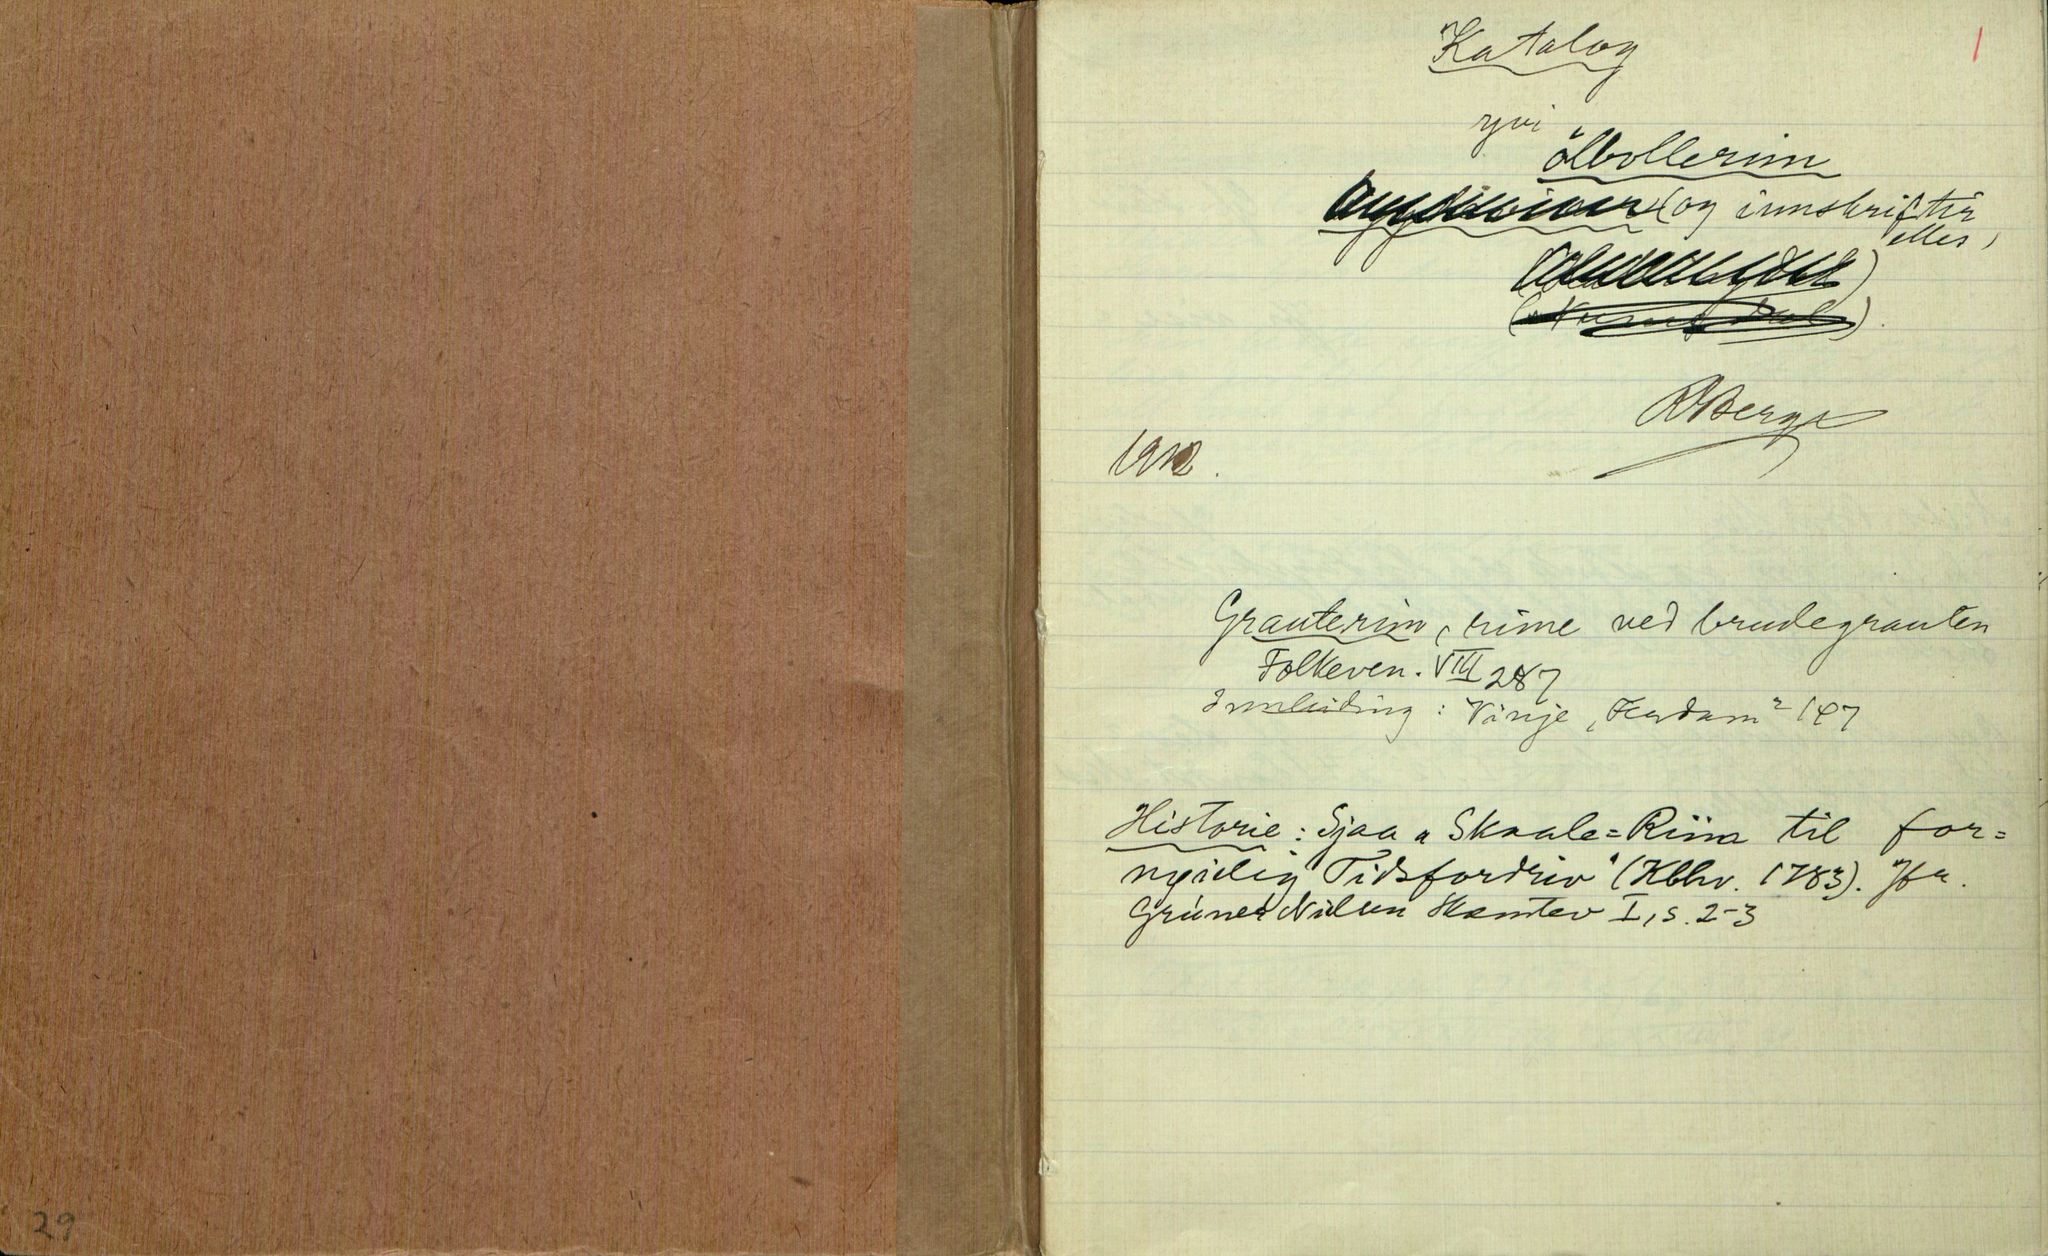 1
Katalog
yvi
ölbollerim
(og innskrifter
elles)
RBerge
1912.
Grauterim, rime ved brudegrauten
Folkeven. VIII 287
Innleiding: Vinje, "Ferdam" 147
Historie: Sjaa "Skaale=Riim til for=
nøielig Tidsfordriv" (Kbhv. 1783). Jfr.
Grüner Nielsen I, s. 2-3
29